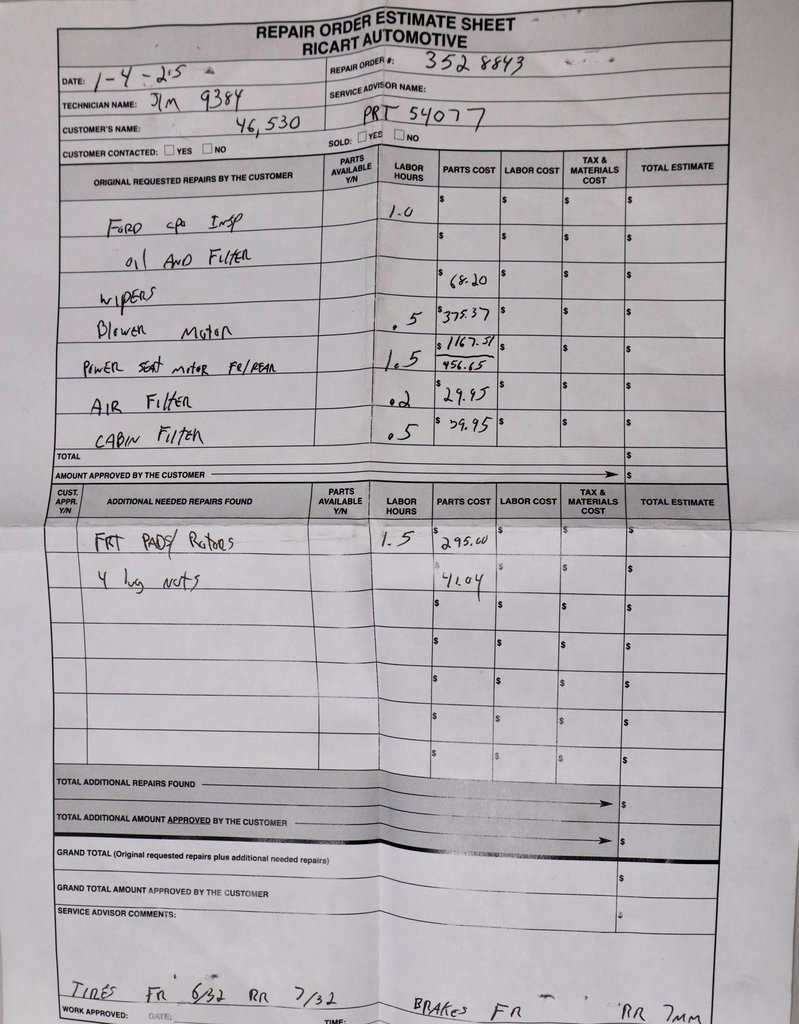 REPAIR ORDER ESTIMATE SHEET
RICART AUTOMOTIVE
DATE: 1-4-25
REPAIR ORDER #: 3528843
TECHNICIAN NAME: JIM 9384
SERVICE ADVISOR NAME:
CUSTOMER'S NAME: 46,530
PRT 54077
CUSTOMER CONTACTED: YES NO
SOLD: YES NO
ORIGINAL REQUESTED REPAIRS BY THE CUSTOMER PARTS AVAILABLE Y/N LABOR HOURS PARTS COST LABOR COST TAX & MATERIALS COST TOTAL ESTIMATE
FORD CPO INSP 1.0 $ $ $ $
OIL AND FILTER $ $ $ $
WIPERS $ 68.20 $ $ $
BLOWER MOTOR .5 $ 375.37 $ $ $
POWER SEAT MOTOR FR/REAR 1.5 $ 1167.51 456.65 $ $ $
AIR FILTER .2 $ 29.95 $ $ $
CABIN FILTER .5 $ 39.95 $ $ $
TOTAL $
AMOUNT APPROVED BY THE CUSTOMER $
CUST. APPR. Y/N ADDITIONAL NEEDED REPAIRS FOUND PARTS AVAILABLE Y/N LABOR HOURS PARTS COST LABOR COST TAX & MATERIALS COST TOTAL ESTIMATE
FRT PADS/ Rotors 1.5 $ 295.00 $ $ $
4 lug nuts $ 41.04 $ $ $
$ $ $ $
$ $ $ $
$ $ $ $
$ $ $ $
$ $ $ $
TOTAL ADDITIONAL REPAIRS FOUND $
TOTAL ADDITIONAL AMOUNT APPROVED BY THE CUSTOMER $
GRAND TOTAL (Original requested repairs plus additional needed repairs) $
GRAND TOTAL AMOUNT APPROVED BY THE CUSTOMER $
SERVICE ADVISOR COMMENTS:
TIRES FR 6/32 RR 7/32 BRAKES FR RR 7MM
WORK APPROVED: DATE: TIME: